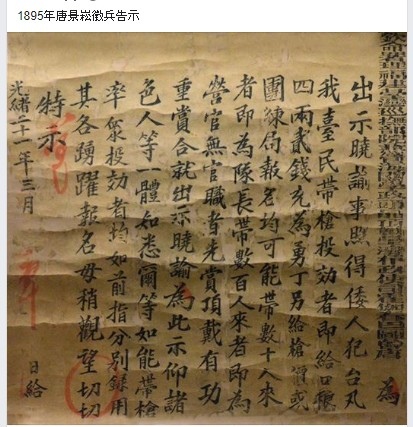 1895年唐景崧徵兵告示
為
出示曉諭事照得倭人犯台凡
我臺民帶槍投効者即給口糧
四兩貳錢充為勇丁另給槍價或
團練局報名均可能帶數十人來
者即為隊長帶數百人來者即為
營官無官職者先賞頂戴有功
重賞合就出示曉諭為此示仰諸
色人等一體知悉爾等如能帶槍
率眾投効者均如前指分別錄用
其各踴躍報名毋稍觀望切切
特示
光緒二十一年三月 日給